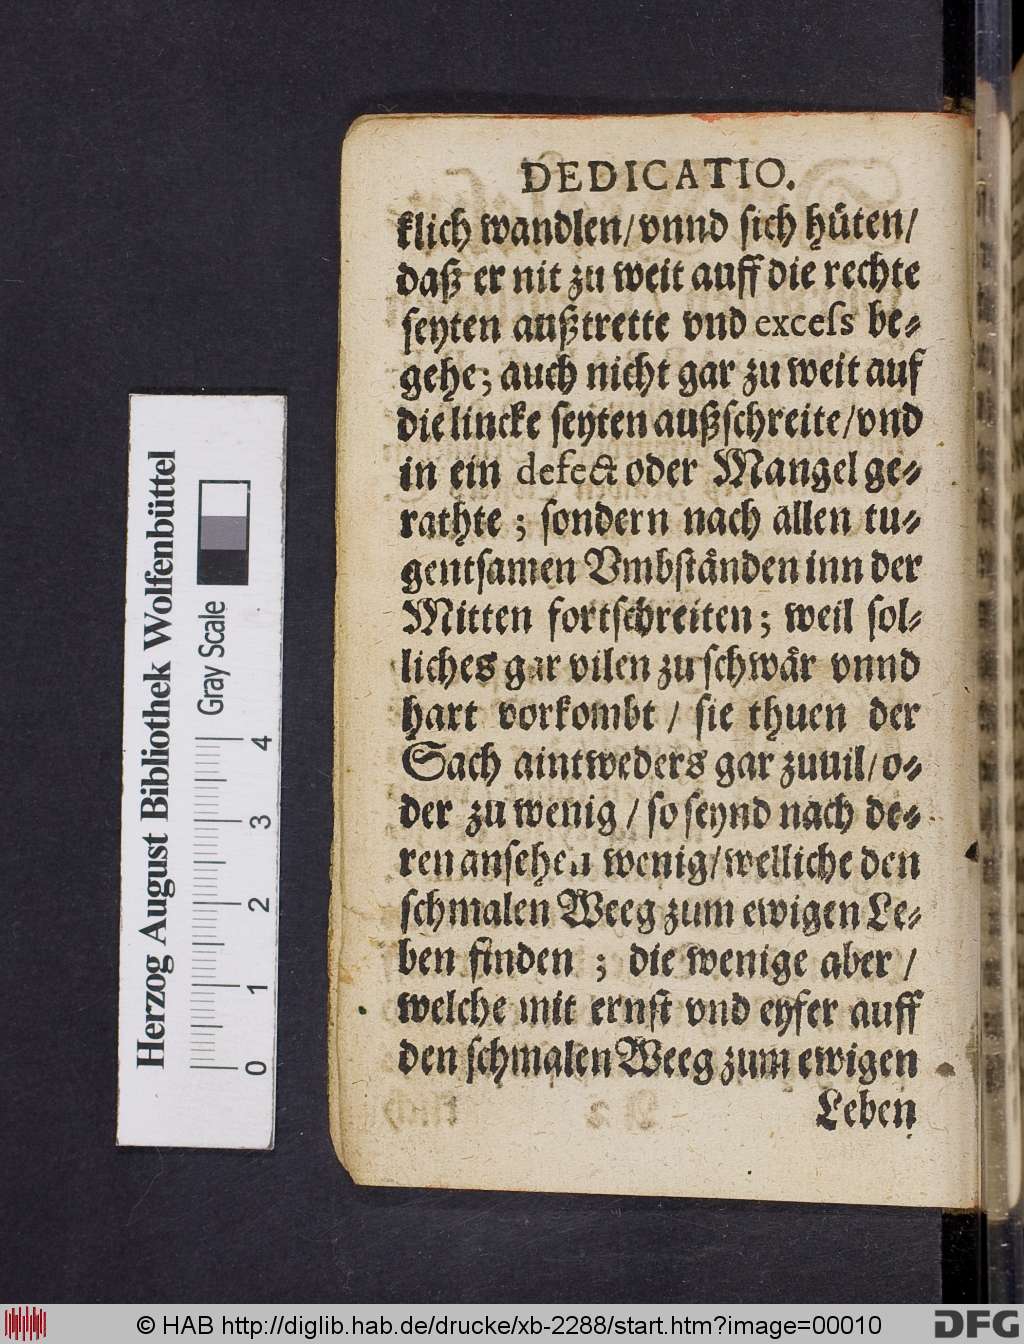 DEDICATIO.
klich wandlen/vnnd sich hüten/
daß er nit zu weit auff die rechte
seyten außtrette vnd exceſs be-
gehe; auch nicht gar zu weit auf
die lincke seyten außschreite/vnd
in ein defect oder Mangel ge-
rathte ; sondern nach allen tu-
gentsamen Vmbständen inn der
Mitten fortschreiten; weil sol-
liches gar vilen zu schwär vnnd
hart vorkombt / sie thuen der
Sach aintweders gar zuuil/o-
der zu wenig / so seynd nach de-
ren ansehen wenig/welliche den
schmalen Weeg zum ewigen Le-
ben finden ; die wenige aber /
welche mit ernst vnd eyfer auff
den schmalen Weeg zum ewigen
Leben
Herzog August Bibliothek Wolfenbüttel
Gray Scale
0 1 2 3 4
© HAB http://diglib.hab.de/drucke/xb-2288/start.htm?image=00010
DFG